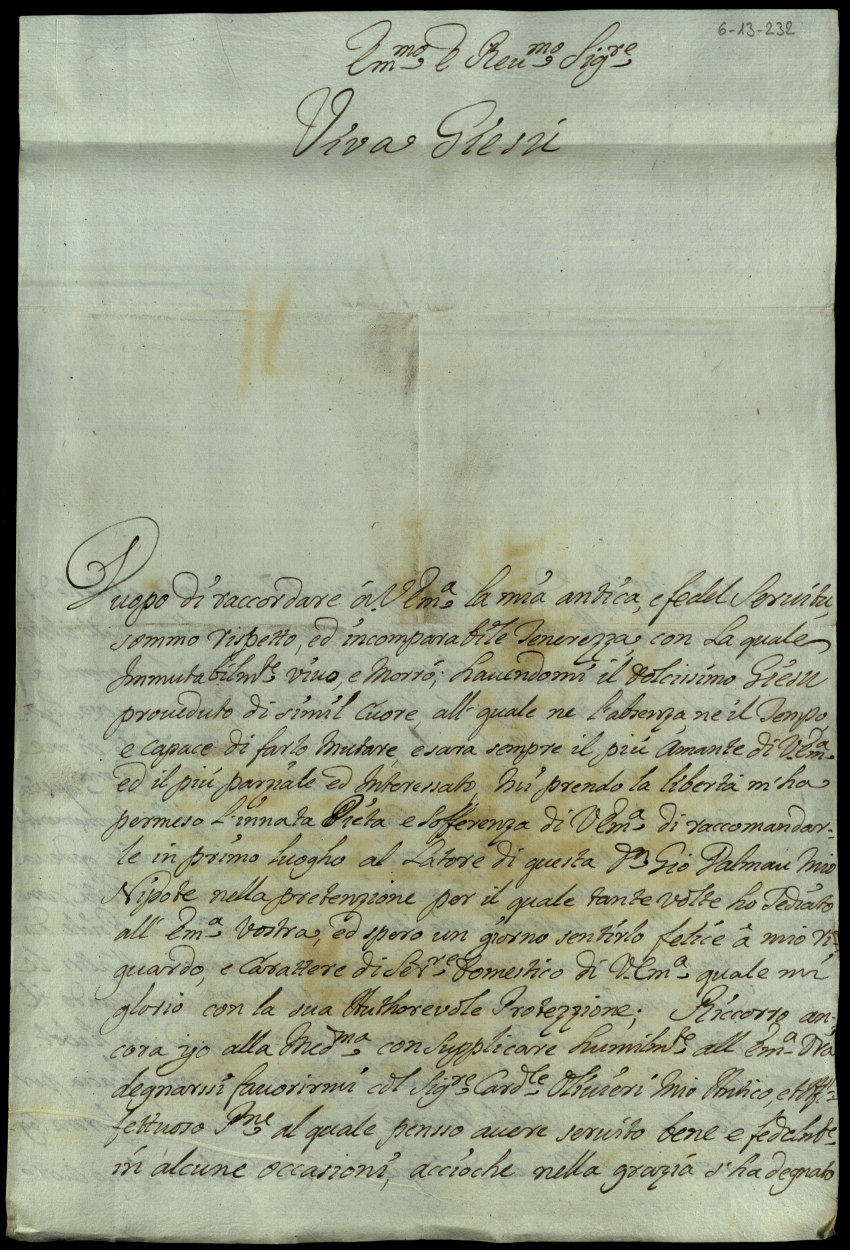 6-13-232
Em.mo e Reu.mo Sig.re
Viva Giesú
Duopo di raccordare á V Em.a la mia antica, e fedel Servitu,
sommo rispetto, ed incomparabile Tenerezza, con la quale
Immutabilm.te vivo, e Morró; havendomi il dolcissimo Giesu
proveduto di simil Cuore, all quale ne l'absenza, ne il Tempo,
e capace di farlo Mutare, e sara sempre il piú Amante di V.Em.a
ed il piú parziale ed Interessato, mi prendo la libertá m'ha
permeso L'innata Pietá e Sofferenza di V Em.a di raccomandar-
le in primo luogho al Latore di questa D.n Gio Dalmau Mio
Nipote nella pretenzione per il quale tante volte ho Tediato
all' Em.a Vostra, ed spero un giorno sentirlo felice á mio ri-
guardo, e Carattere di Ser.re Domestico di V.Em.a quale mi
glorio con la sua Authorevole Protezzione; Riccorro an-
cora yo alla Med.ma con supplicare humilm.te all' Em.a Vra
degnarsi favorirmi col Sig.re Card.le Olivieri Mio Antico, et Aff-
fettuoso P.ne al quale pensso avere servito bene e fedelm.te
in alcune occasioni, accioche nella grazia s'ha degnato